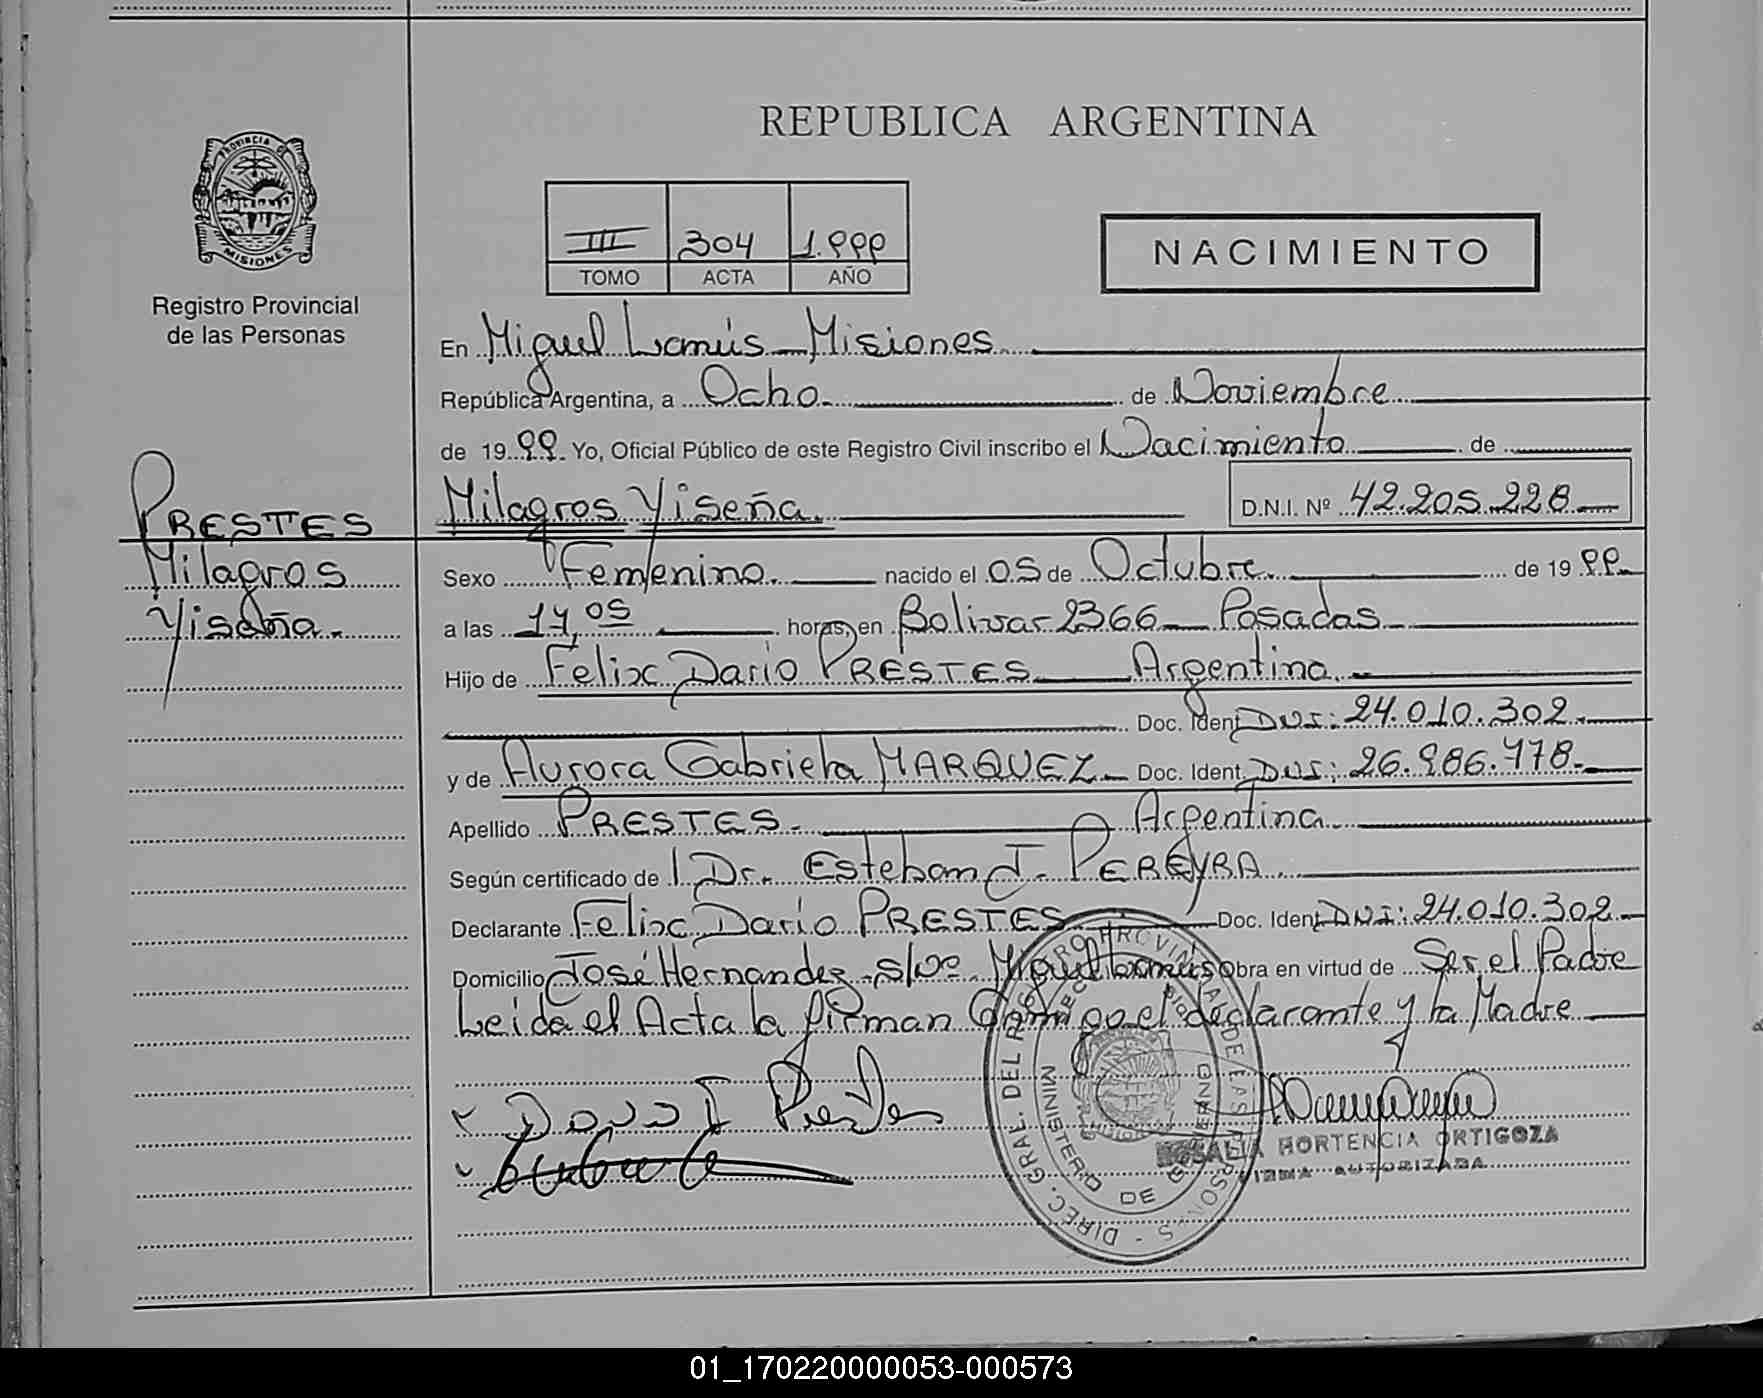 REPUBLICA ARGENTINA
PROVINCIA DE MISIONES
Registro Provincial
de las Personas
III 304 1.999
TOMO ACTA AÑO
NACIMIENTO
En Miguel Lanús - Misiones
República Argentina, a Ocho de Noviembre
de 1999 Yo, Oficial Público de este Registro Civil inscribo el Nacimiento de
Milagros Yiseña D.N.I. Nº 42.205.228
PRESTES
Milagros
Yiseña.
Sexo Femenino. nacido el 05 de Octubre. de 1999
a las 17,05 horas, en Bolivar 2366 - Posadas
Hijo de Felix Dario PRESTES Argentina
Doc. Ident DNI: 24.010.302
y de Aurora Gabriela MARQUEZ Doc. Ident. DNI: 26.986.778
Apellido PRESTES - Argentina
Según certificado de Dr. Esteban J. PEREYRA
Declarante Felix Dario PRESTES Doc. Ident DNI: 24.010.302
Domicilio José Hernandez s/nº Miguel Lanús Obra en virtud de Ser el Padre
Leida el Acta la firman conmigo el declarante y la Madre
DIREC. GRAL. DEL REGISTRO PROVINCIAL DE LAS PERSONAS
MINISTERIO DE GOBIERNO
ROSALIA HORTENCIA ORTIGOZA
FIRMA AUTORIZADA
01_170220000053-000573